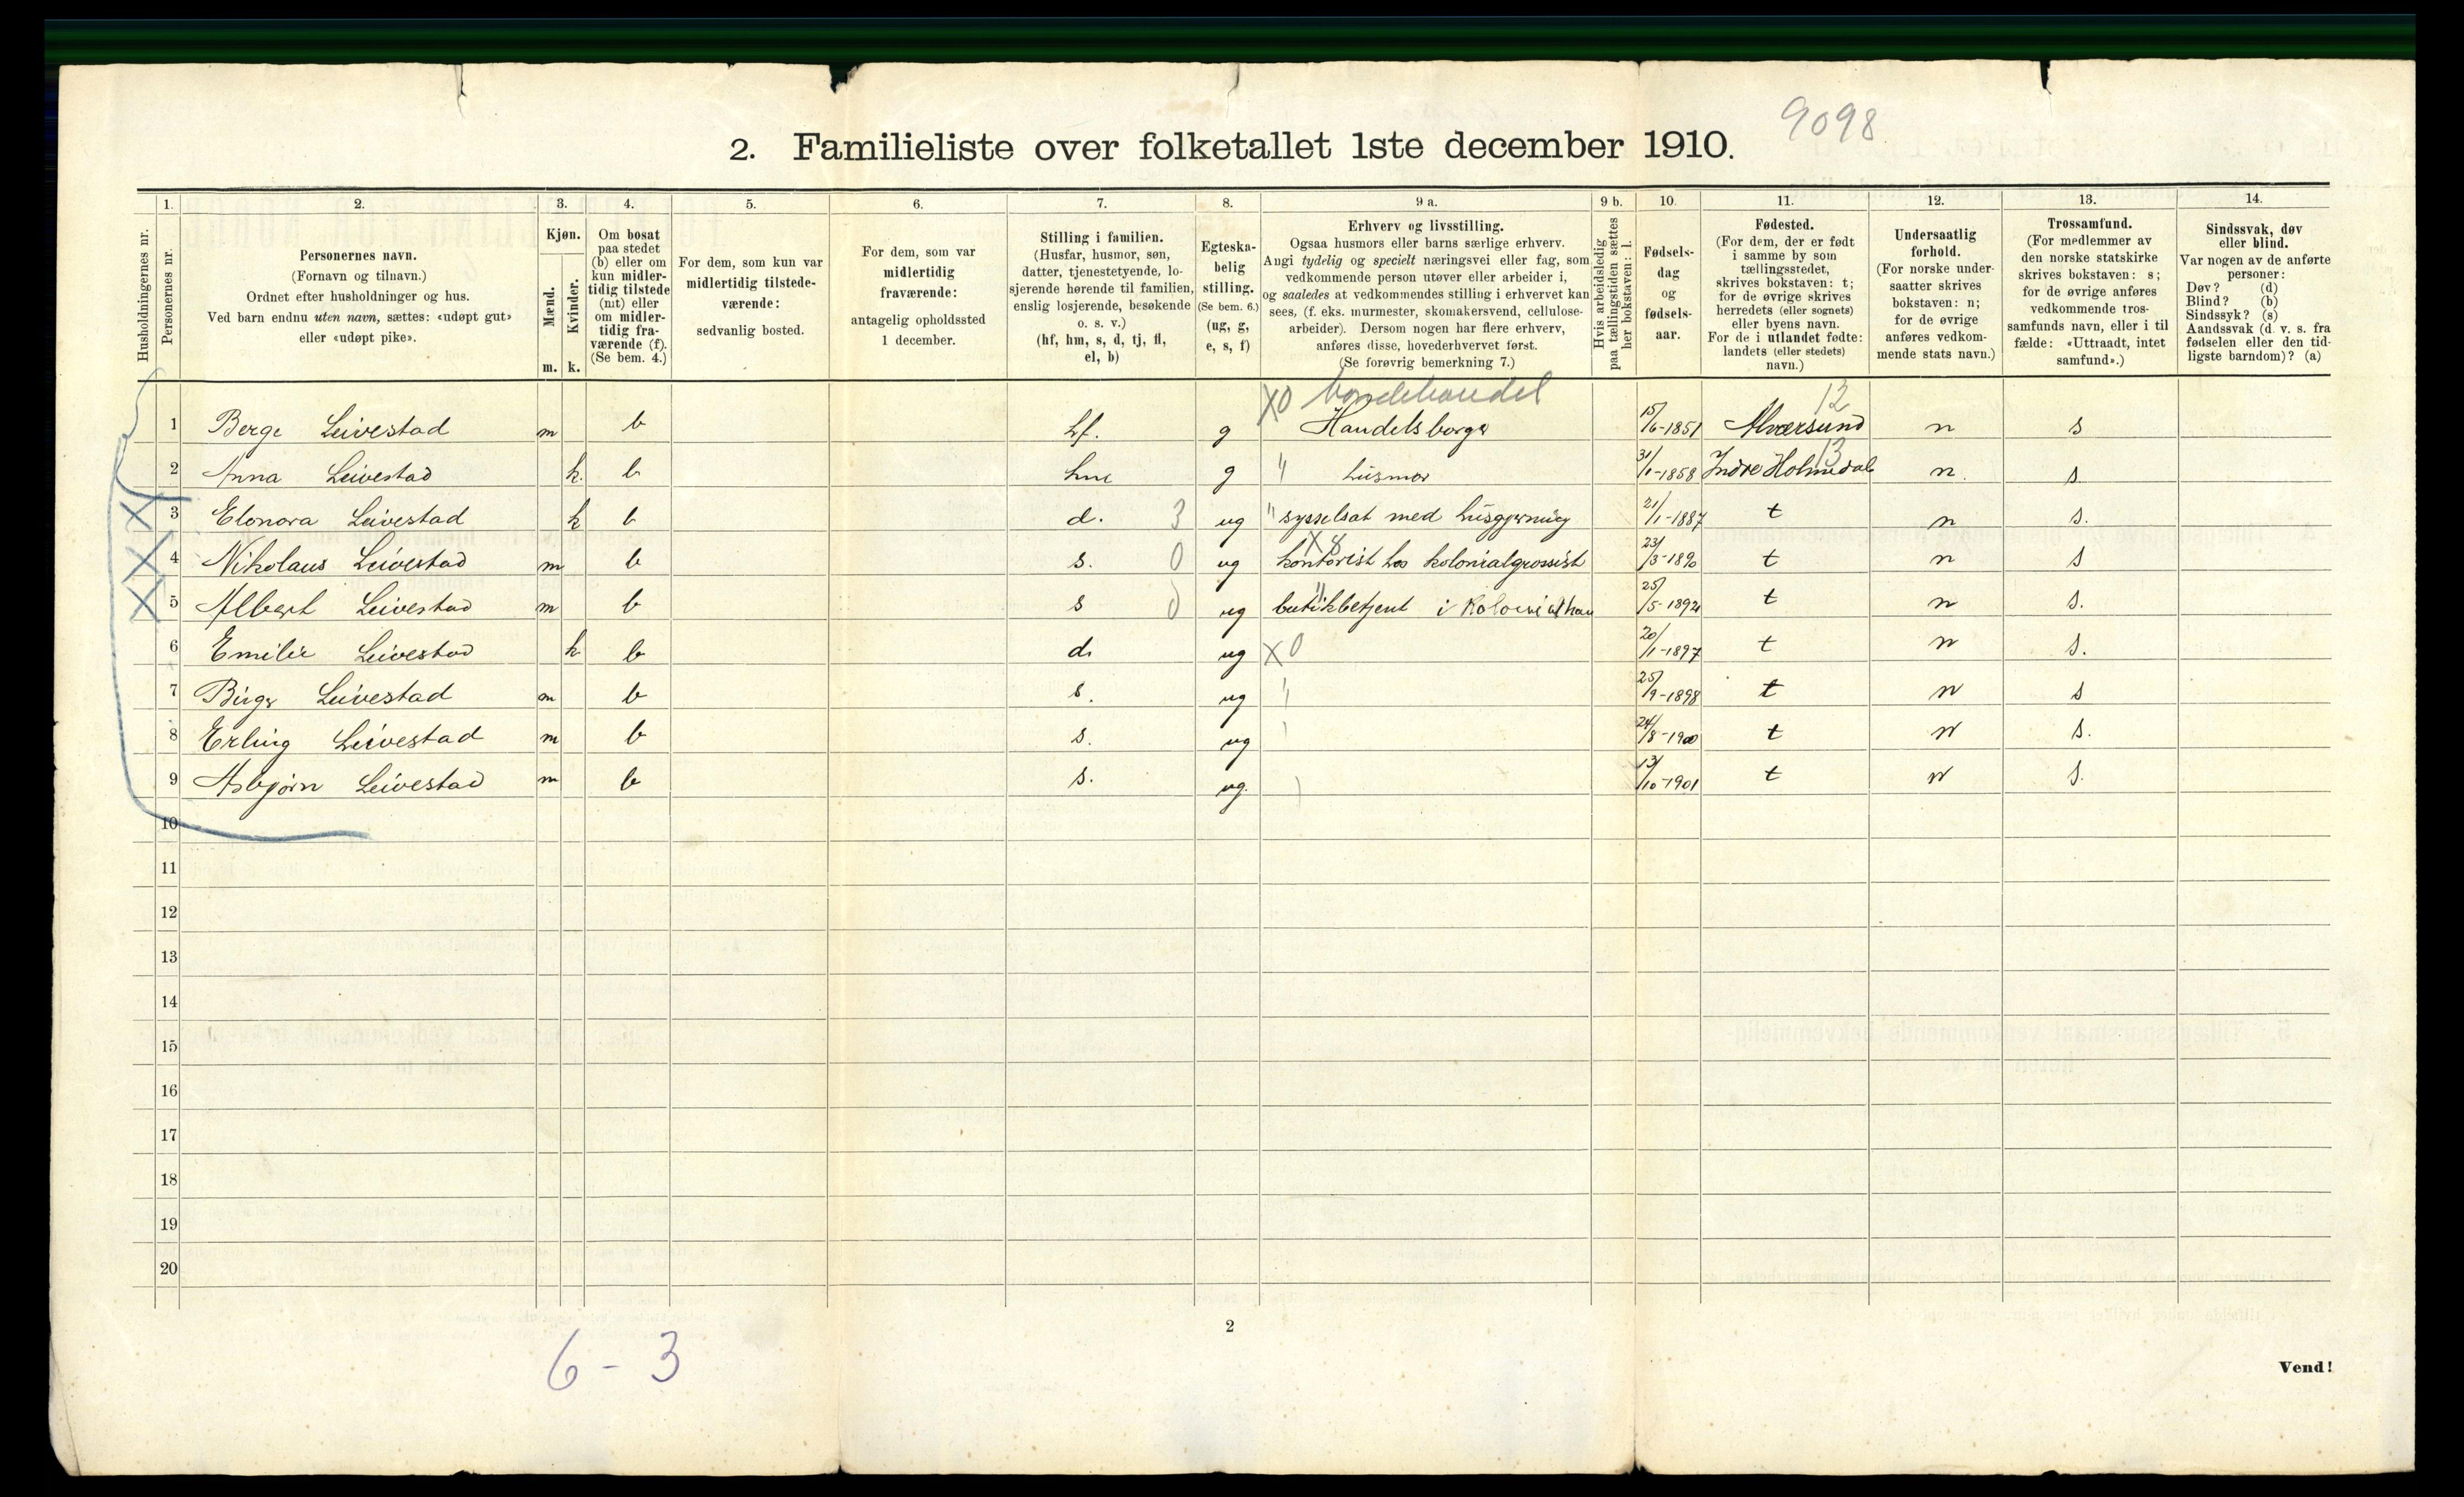 9098
2. Familieliste over folketallet 1ste december 1910.
1. 2. 3. 4. 5. 6. 7. 8. 9 a. 9 b. 10. 11. 12. 13. 14.
Husholdningernes nr.
Personernes nr.
Personernes navn.
(Fornavn og tilnavn.)
Ordnet efter husholdninger og hus.
Ved barn endnu uten navn, sættes: «udøpt gut»
eller «udøpt pike».
Kjøn.
Mænd.
Kvinder.
m. k.
Om bosat
paa stedet
(b) eller om
kun midler-
tidig tilstede
(mt) eller
om midler-
tidig fra-
værende (f).
(Se bem. 4.)
For dem, som kun var
midlertidig tilstede-
værende:
sedvanlig bosted.
For dem, som var
midlertidig
fraværende:
antagelig opholdssted
1 december.
Stilling i familien.
(Husfar, husmor, søn,
datter, tjenestetyende, lo-
sjerende hørende til familien,
enslig losjerende, besøkende
o. s. v.)
(hf, hm, s, d, tj, fl,
el, b)
Egteska-
belig
stilling.
(Se bem. 6.)
(ug, g,
e, s, f)
Erhverv og livsstilling.
Ogsaa husmors eller barns særlige erhverv.
Angi tydelig og specielt næringsvei eller fag, som
vedkommende person utøver eller arbeider i,
og saaledes at vedkommendes stilling i erhvervet kan
sees, (f. eks. murmester, skomakersvend, cellulose-
arbeider). Dersom nogen har flere erhverv,
anføres disse, hovederhvervet først.
(Se forøvrig bemerkning 7.)
Hvis arbeidsledig
paa tællingstiden sættes
her bokstaven: l.
Fødsels-
dag
og
fødsels-
aar.
Fødested.
(For dem, der er født
i samme by som
tællingsstedet,
skrives bokstaven: t;
for de øvrige skrives
herredets (eller sognets)
eller byens navn.
For de i utlandet fødte:
landets (eller stedets)
navn.)
Undersaatlig
forhold.
(For norske under-
saatter skrives
bokstaven: n;
for de øvrige
anføres vedkom-
mende stats navn.)
Trossamfund.
(For medlemmer av
den norske statskirke
skrives bokstaven: s;
for de øvrige anføres
vedkommende tros-
samfunds navn, eller i til
fælde: «Uttraadt, intet
samfund».)
Sindssvak, døv
eller blind.
Var nogen av de anførte
personer:
Døv? (d)
Blind? (b)
Sindssyk? (s)
Aandssvak (d. v. s. fra
fødselen eller den tid-
ligste barndom)? (a)
X0 bondehandel 12
1 Berge Leivestad m b hf. g Handelsborger 15/6-1851 Alværsund n s
13
2 Anna Leivestad k. b hm g " husmor 31/1-1858 Indre Holmedal n. s
3 Elonora Leivestad k b d. 3 ug " sysselsat med husgjerning 21/1-1887 t n s.
X8
4 Nikolaus Leivestad m b s. 0 ug kontorist hos kolonialgrossist 23/3-1890 t n s
5 Albert Leivestad m b s 0 ug butikbetjent i kolonialhan 25/5-1892 t n s.
6 Emilie Leivestad k b d. ug X0 20/1-1897 t n s.
7 Birger Leivestad m b s. ug " 25/9-1898 t n s
8 Erling Leivestad m b s. ug 24/8-1900 t n s.
9 Asbjørn Leivestad m b s. ug. 13/10-1901 t n s.
10
11
12
13
14
15
16
17
18
19
20
2
6 - 3
Vend!